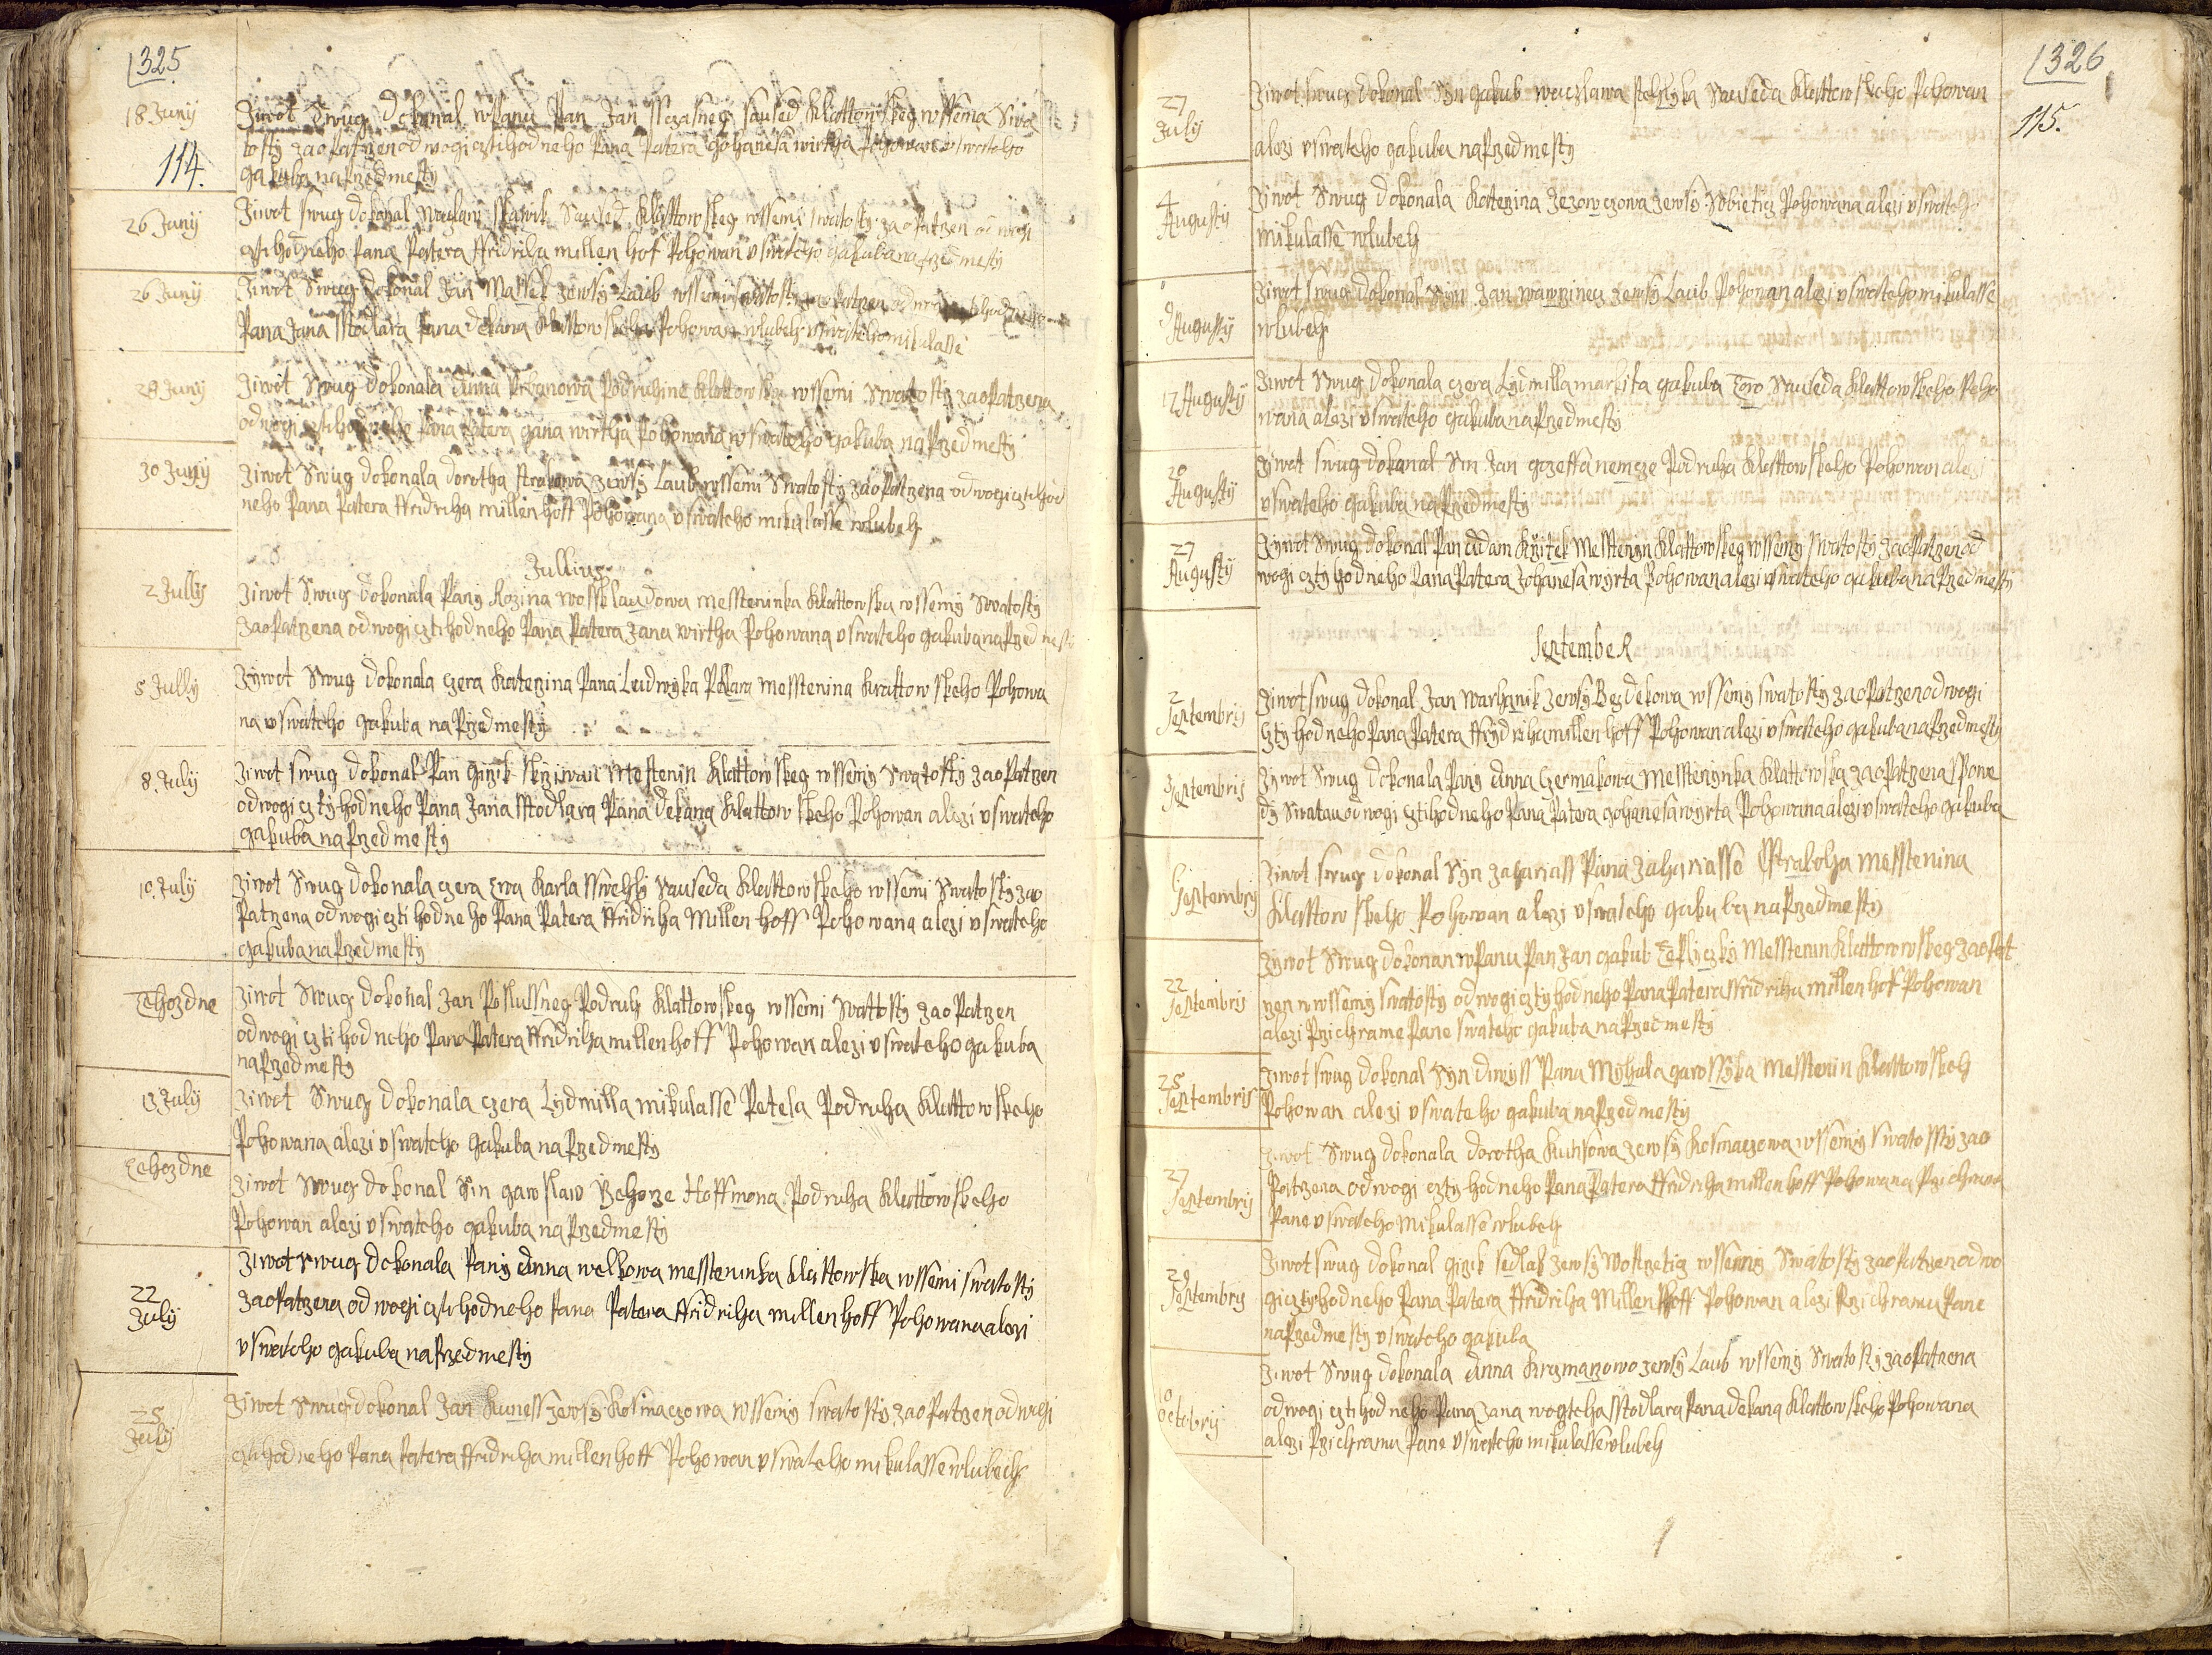 325
18 Juny
114.
Ziwot Swug dokonal wPanu Pan Jan sstastneg Saused Klattowskeg wssema Swa
tosty zaoPatzen od wogi cztihodneho Pana Patera Johanesa wirtha Pohowan v swateho
Gakuba naPrzedmesty
26 Juny
Ziwot swug dokonal Saused Klattowskeg wssemi swatosty zaoPatzen od wogi
cztihodneho Pana Patera ffridricha millenhof Pohowan v swateho Gakuba naPrzedmesty
26 Juny
Ziwot Swug dokonal Jan Massek zewsy Laub wssemi swatosty zaoPatzen od
Pana Jana sstodlara Pana dekana Klattowskeho Pohowan wlubch v swateho mikulasse
28 Juny
Ziwot Swug dokonala Anna Podruhine Klattowska wssemi Swatosty zaoPatzena
od wogi cztihodneho Pana Patera Jana wirtha Pohowana v swateho Gakuba naPrzedmesty
30 Juny
Ziwot Swug dokonala dorotha zewsy Laub wssemi Swatosty zaoPatzena od wogi cztihod
neho Pana Patera ffridricha millenhoff Pohowana v swateho mikulasse wlubch
Jullius
2 Jully
Ziwot Swug dokonala Pany Rozina wosklaudowa messteninka Klattowska wssemy Swatosty
zaoPatzena od wogi cztihodneho Pana Patera Jana wirtha Pohowana v swateho Gakuba naPrzedmesti
5 Jully
Zywot Swug dokonala czera Katerzina Pana Leudwyka Pekara messtenina Krattowskeho Pohowa
na v swateho Gakuba naPrzedmesty
8. July
Ziwot swug dokonal Pan Girzik skrziwan Mestenin Klattowskeg wssemy Swatosty zaoPatzen
od wogi cztyhodneho Pana Jana sstodlara Pana dekana Klattowskeho Pohowan alezi v swateho
Gakuba naPrzedmesty
10. July
Ziwot Swug dokonala czera Ewa Karla Sauseda Klattowskeho wssemi Swatosty zao
Patzena od wogi cztihodneho Pana Patera ffridricha Millenhoff Pohowana alezi v swateho
Gakuba naPrzedmesty
Tehozdne
Ziwot Swug dokonal Jan Poslussneg Podruh Klattowskeg wssemi Swattosty zaoPatzen
od wogi cztihodneho Pana Patera ffridricha millenhoff Pohowan alezi v swateho Gakuba
naPrzedmesty
13 July
Ziwot Swug dokonala czera Lydmilla mikulasse Petela Podruha Klattowskeho
Pohowana alezi v swateho Gakuba naPrzedmesty
Tehozdne
Ziwot Swug dokonal Sin Gawslaw Rzehorze Hoffmona Podruha Klattowskeho
Pohowan alezi v swateho Gakuba naPrzedmesty
22
July
Ziwot Swug dokonala Pany Anna welkowa messteninka Klattowska wssemi swatosty
zaoPatzena od wogi cztihodneho Pana Patera ffridricha millenhoff Pohowana alezi
v swateho Gakuba naPrzedmesty
25
July
Ziwot Swug dokonal Jan Kuness zewsy Kosmaczowa wssemy swatosty zaoPatzen od wogi
cztihodneho Pana Patera ffridricha millenhoff Pohowan v swateho mikulasse wlubech
326
115.
27
July
Ziwot swug dokonal Syn Gakub waczlawa Sauseda Klattowskeho Pohowan
alezi v swateho Gakuba naPrzedmesty
4
Augusty
Ziwot Swug dokonala Katerzina Jezowczowa zewsy Sobieticz Pohowana alezi v swateho
mikulasse wlubch
9
Augusty
Ziwot swug dokonal Syn Jan wawrzinecz zewsy Laub Pohowan alezi v swateho mikulasse
wlubch
12 Augusty
Ziwot Swug dokonala czera Lydmilla markita Gakuba Toro Sauseda Klattowskeho Poho
wana alezi v swateho Gakuba naPrzedmesty
20
Augusty
Ziwot swug dokonal Sin Jan Gozeffa nemcze Podruha Klattowskeho Pohowan alezi
v swateho Gakuba naPrzedmesty
27
Augusty
Zywot Swug dokonal Pan Adam Kytek Messtenyn Klattowskeg wssemy swatosty zaoPatzen od
wogi cztyhodneho Pana Patera Johanesa wyrta Pohowan alezi v swateho Gakuba naPrzedmesty
September
2
Septembris
Ziwot swug dokonal Jan Warhanik zewsy Bezdekowa wssemy swatosty zaoPatzen od wogi
cztyhodneho Pana Patera ffrydricha millenhoff Pohowan alezi v swateho Gakuba naPrzedmesty
3
Septembris
Zywot Swug dokonala Pany Anna Czermakowa Messtenynka Klattowska zaoPatzena spowe
dy Swatau od wogi cztihodneho Pana Patera Johanesa wyrta Pohowana alezi v swateho Gakuba
6
Septembris
Ziwot swug dokonal Syn Zahariass Pana Zahariasse Messtenina
Klattowskeho Pohowan alezi v swateho Gakuba naPrzedmesty
22
Septembris
Zywot Swug dokonan wPanu Pan Jan Gakub Teplyczky Messtenin Klattowwskeg zaoPat
zen wssemy swatosty od wogi cztyhodneho Pana Patera ffridricha millenhof Pohowan
alezi Przi chrame Pane swateho Gakuba naPrzedmesty
25
Septembris
Ziwot swug dokonal Syn diwyss Pana Myhala Garossyka Messtenin Klattowskeh
Pohowan alezi v swateho Gakuba naPrzedmesty
27
Septembris
Ziwot Swug dokonala dorotha Kunsowa zewsy Kosmaczowa wssemy swatossty zao
Patzena od wogi cztyhodneho Pana Patera ffridricha millenhoff Pohowana Przi chrama
Pane v swateho Mikulasse wlubch
29
Septembris
Ziwot swug dokonal Girzik sedlak zewsy Wostreticz wssemy Swatosty zaoPatzen od wo
gi cztyhodneho Pana Patera ffridricha Millenhoff Pohowan alezi Przi chramu Pane
naPrzedmesty v swateho Gakuba
10
Octobris
Ziwot Swug dokonala Anna Krzmarzowo zewsy Laub wssemy Swatosty zaoPatzena
od wogi cztihodneho Pana Jana wogtcha sstodlara Pana dekana Klattowskeho Pohowana
alezi Przi chramu Pane v swateho mikulasse wlubch